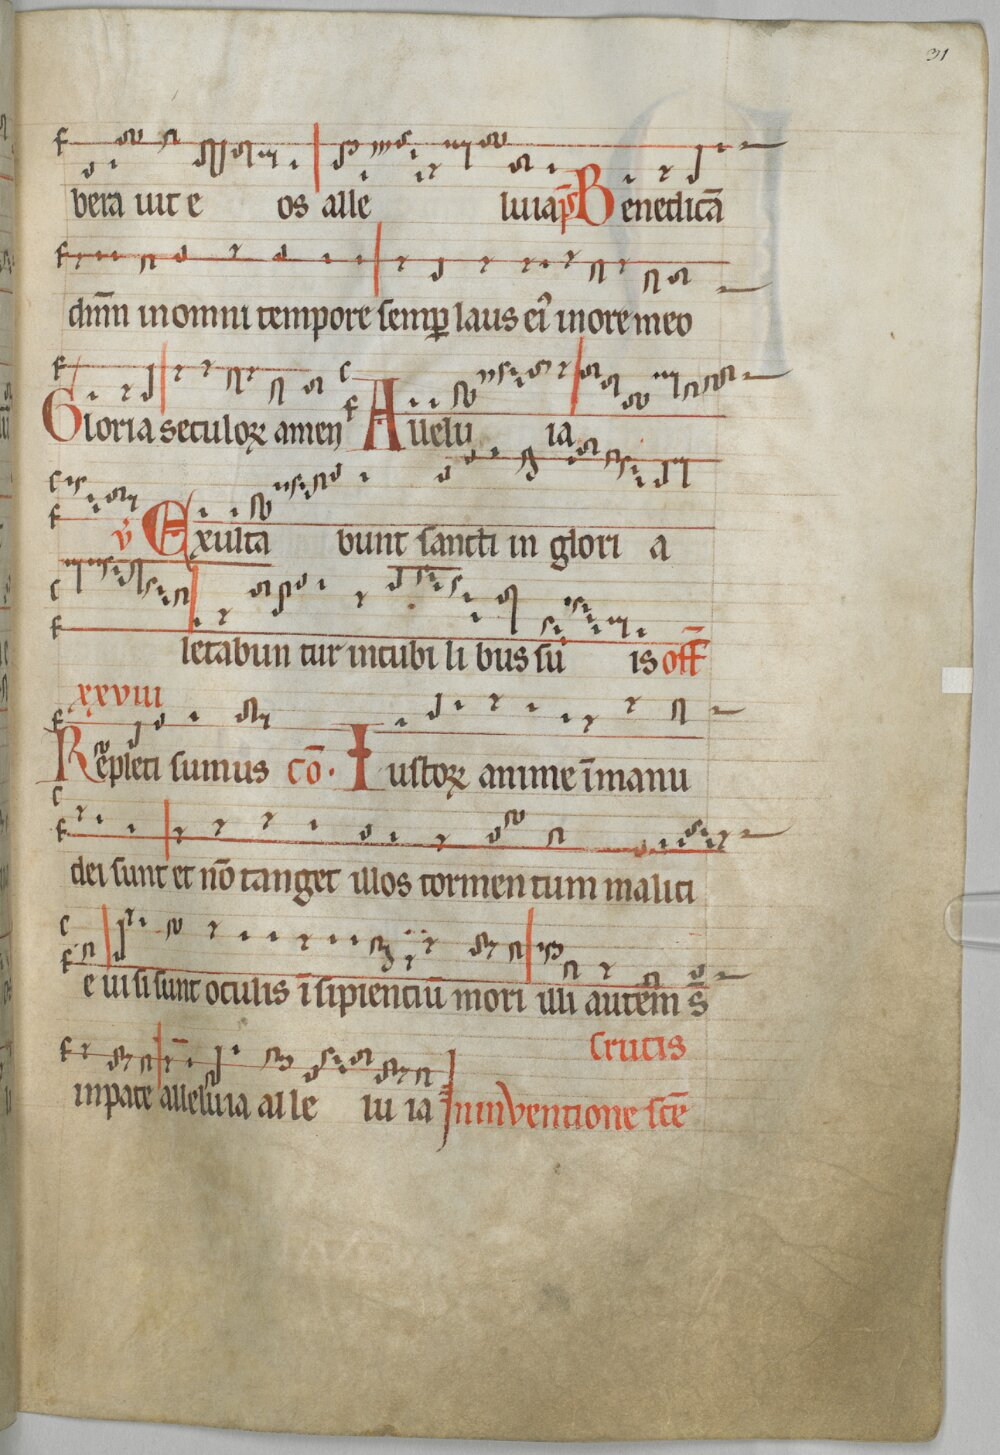 31
bera uit e os alle luia p̄s Benedicā
dm̄n in omni tempore semꝑ laus ei᾽ in ore meo
Gloria seculoꝝ amen Allelu ia
v̄ Exulta bunt sancti in glori a
letabun tur in cubi li bus su is off̄
xxviii
Repleti sumus cō. Iustoꝝ anime ī manu
dei sunt et nō tanget illos tormen tum maliti
e uisi sunt oculis īsipientiū mori illi autem s̄
crucis
in pace alleluia alle lu ia In inventione scē